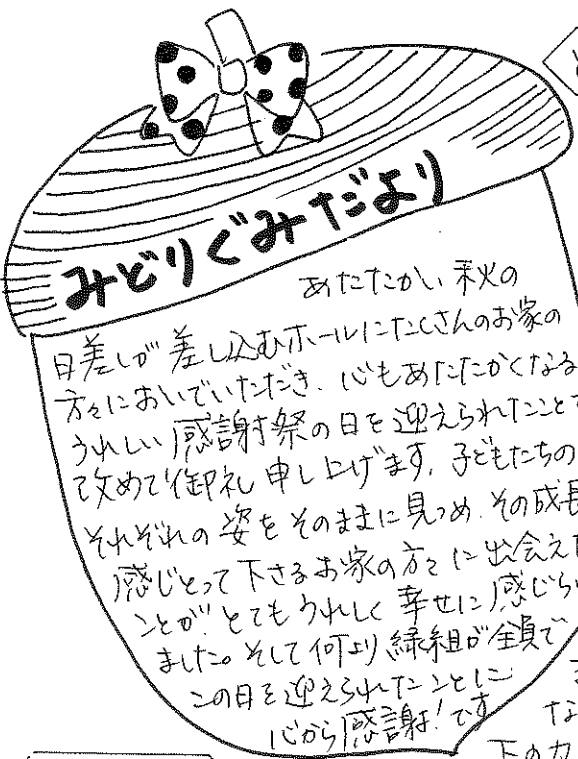 みどりぐみだより
あたたかい秋の
日差しが差し込むホールにたくさんのお家の
方々においでいただき、心もあたたかくなる
うれしい感謝祭の日を迎えられたこと
改めて御礼申し上げます。子どもたちの
それぞれの姿をそのままに見つめ、その成長
感じとって下さるお家の方々に出会えた
ことが、とてもうれしく幸せに感じら
ました。そして何より緑組が全員で
この日を迎えられたことに
心から感謝！です
な
下の